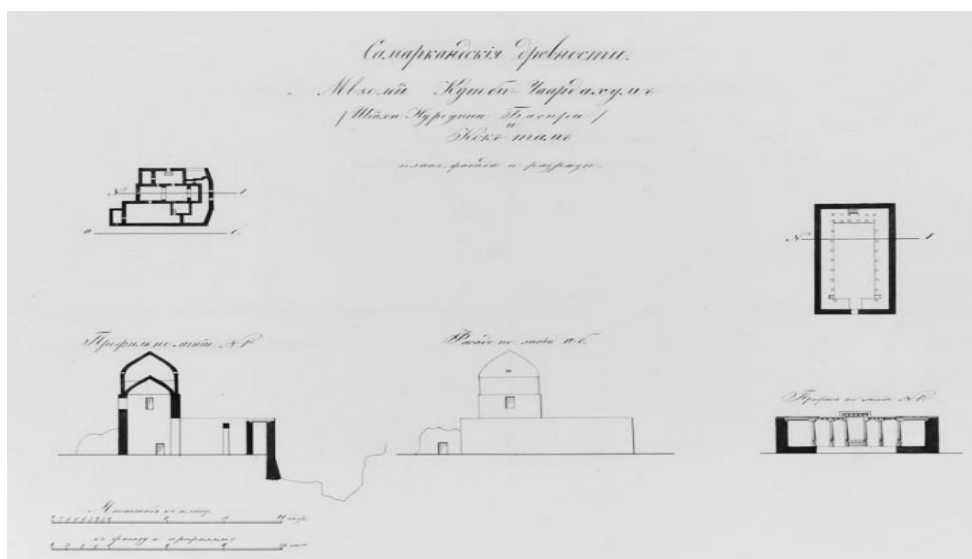 Самаркандскія древности.
Мавзолей Кутби-Чаардахумъ
/ Шейхъ Нуредина Басира /
и
Кокъ ташъ
планъ, фасадъ и разрѣзы.
№ 1
а б.
№ 1
Профиль по линіи № 1º
Фасадъ по линіи а б.
Профиль по линіи № 1º
Масштабъ къ плану
къ фасаду и профилямъ